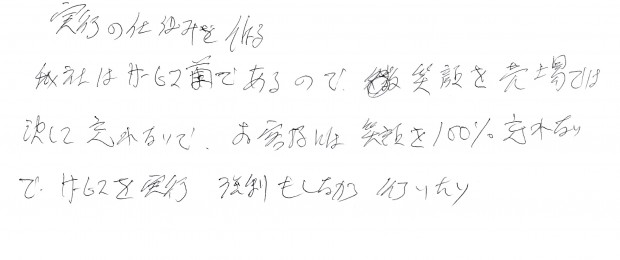 実行の仕組みを作る
弊社はサービス業であるので、笑顔を売場では
決して忘れないで、お客様には笑顔を100%忘れない
で、サービスを実行 強制もしながら 行いたい